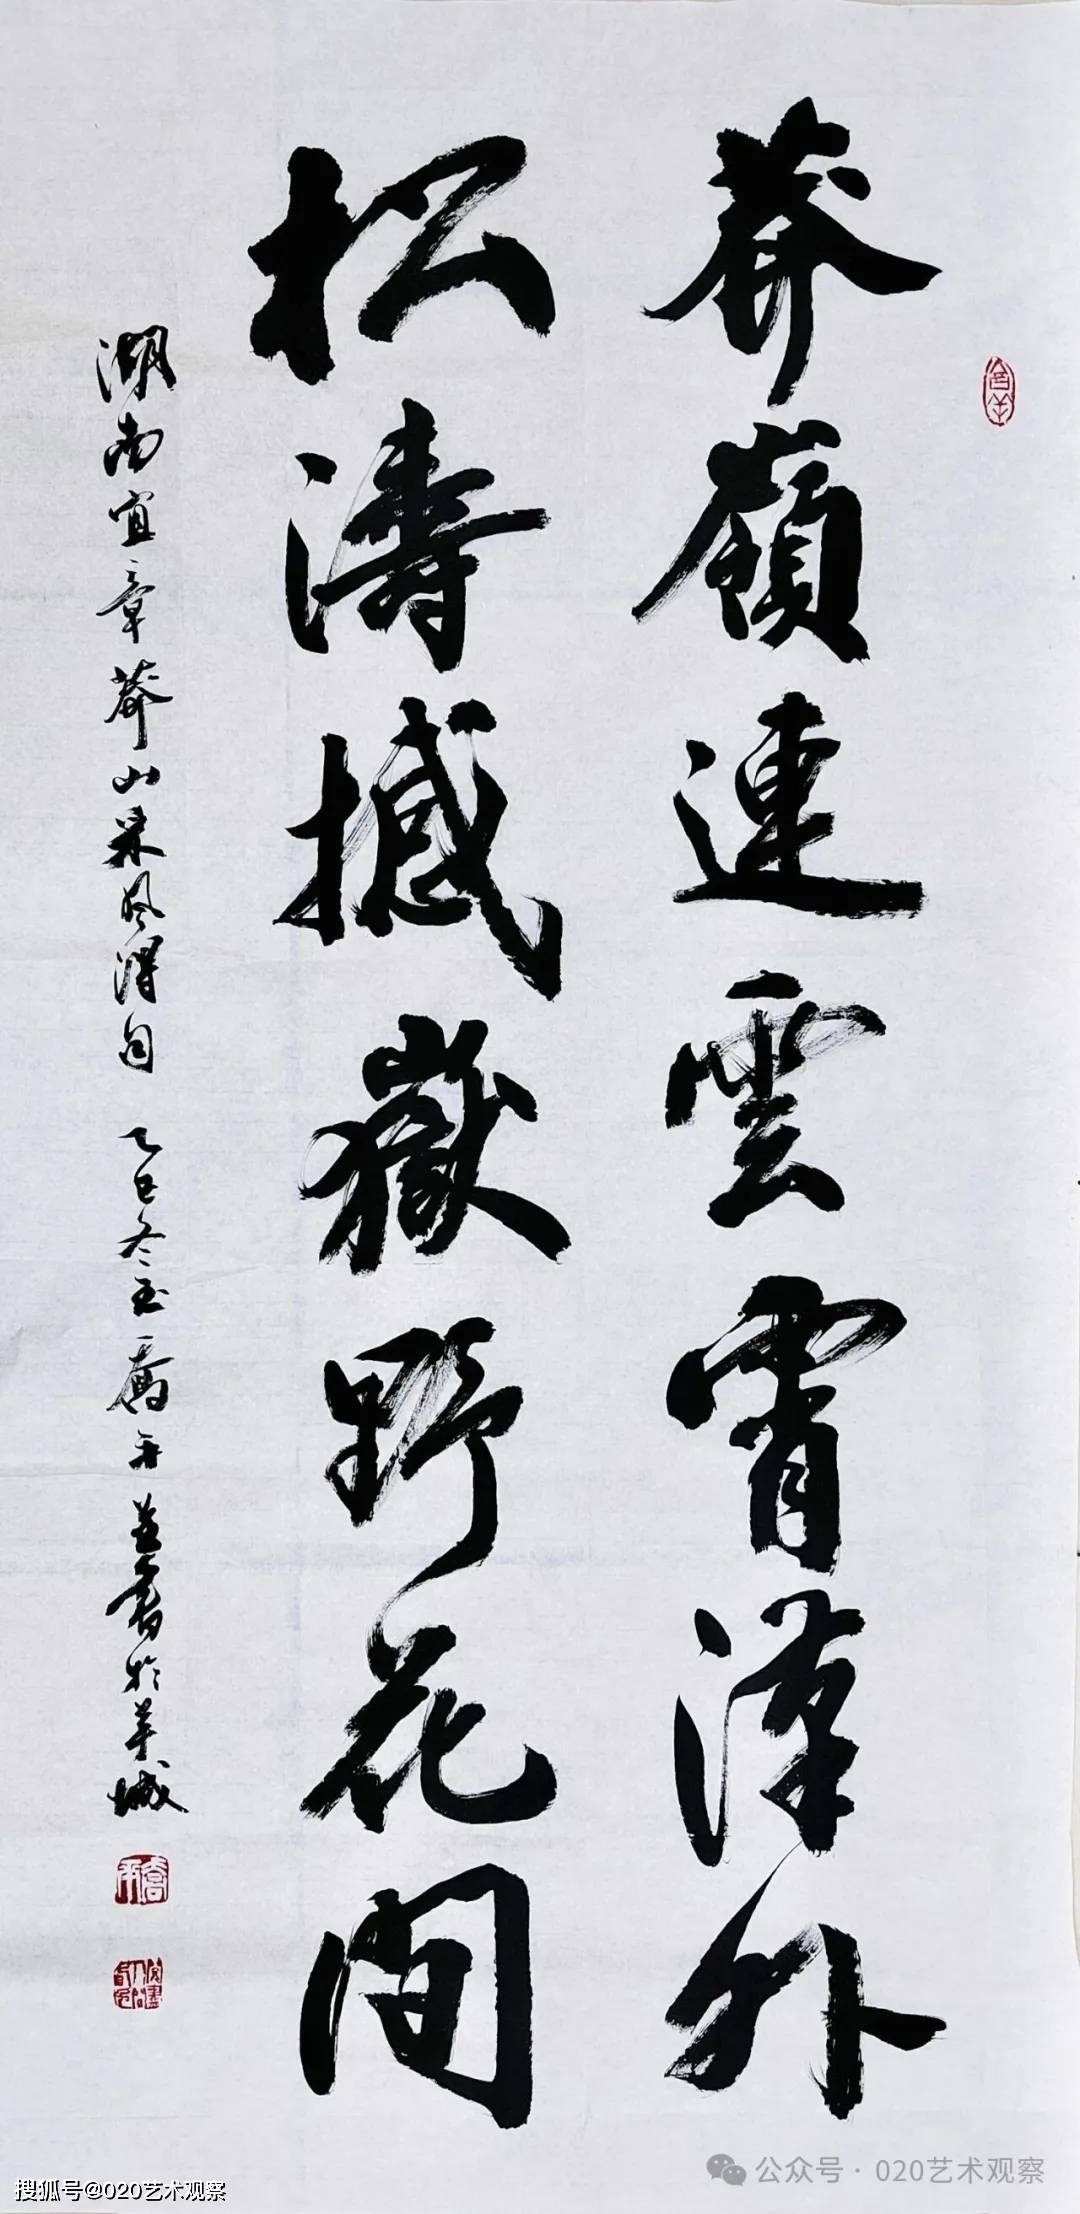 莽嶺連雲霄漢外
松濤撼嶽野花間
湖南宜章莽山采风得句 乙巳冬至喬平并書於羊城
搜狐号@020艺术观察
公众号·020艺术观察